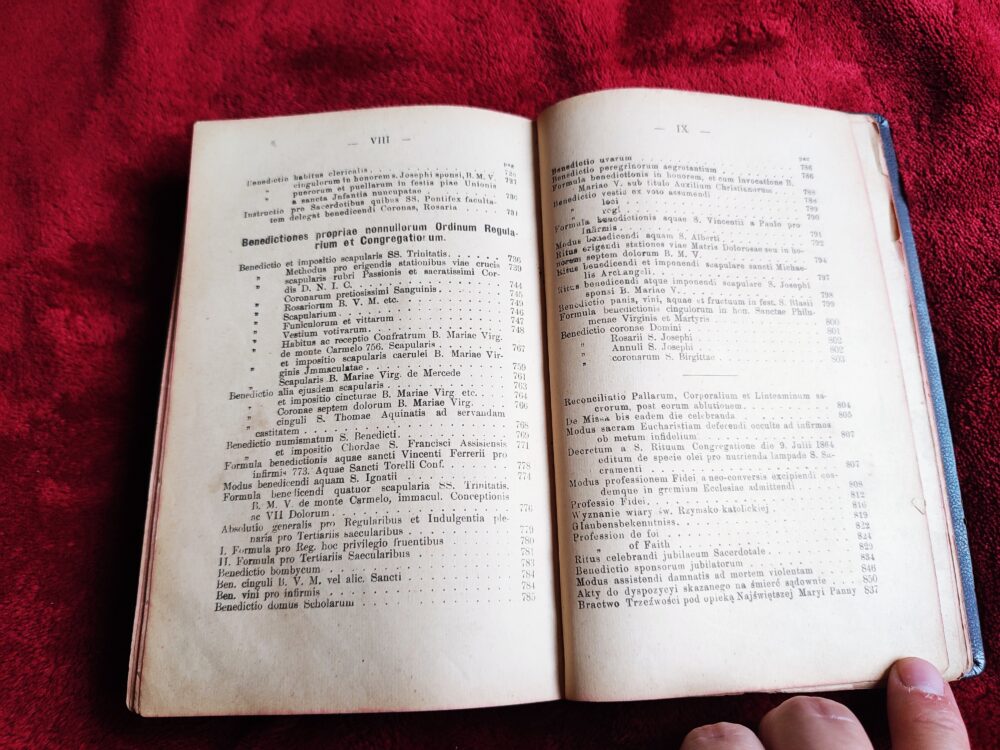 — VIII —
pag
Benedictio habitus clericalis
„ cingulorum in honorem s. Josephi sponsi, B. M. V.
„ puerorum et puellarum in festis piae Unionis
a sancta Jnfantia nuncupatae
Instructio pro Sacerdotibus quibus SS. Pontifex faculta-
tem delegat benedicendi Coronas, Rosaria
Benedictiones propriae nonnullorum Ordinum Regula-
rium et Congregatiorum.
Benedictio et impositio scapularis SS. Trinitatis. 736
„ Methodus pro erigendis stationibus viae crucis 739
„ scapularis rubri Passionis et sacratissimi Cor-
dis D. N. I. C. 744
„ Coronarum pretiosissimi Sanguinis. 745
„ Rosariorum B. V. M. etc. 749
„ Scapularium 746
„ Funiculorum et vittarum 747
„ Vestium votivarum. 748
„ Habitus ac receptio Confratrum B. Mariae Virg.
de monte Carmelo 756. Scapularis 767
„ et impositio scapularis caerulei B. Mariae Vir-
ginis Jmmaculatae 759
„ Scapularis B. Mariae Virg. de Mercede 761
Benedictio alia ejusdem scapularis 763
„ et impositio cincturae B. Mariae Virg. etc. 764
„ Coronae septem dolorum B. Mariae Virg. 766
„ cinguli S. Thomae Aquinatis ad servandam
castitatem 768
Benedictio numismatum S. Benedicti. 769
„ et impositio Chordae S. Francisci Assisiensis 771
Formula benedictionis aquae sancti Vincentii Ferrerii pro
infirmis 773. Aquae Sancti Torelli Conf. 778
Modus benedicendi aquam S. Ignatii 774
Formula benedicendi quatuor scapularia SS. Trinitatis,
B. M. V. de monte Carmelo, immacul. Conceptionis
ac VII Dolorum 776
Absolutio generalis pro Regularibus et Indulgentia ple-
naria pro Tertiariis saecularibus 779
I. Formula pro Reg. hoc privilegio fruentibus 780
II. Formula pro Tertiariis Saecularibus 781
Benedictio bombycum 783
Ben. cinguli B. V. M. vel alic. Sancti 784
Ben. vini pro infirmis 784
Benedictio domus Scholarum 785
— IX —
pag
Benedictio uvarum 786
Benedictio peregrinorum aegrotantium 786
Formula benedictionis in honorem, et cum invocatione B.
Mariae V. sub titulo Auxilium Christianorum 788
Benedictio vestis ex voto assumendi 788
„ loci 789
„ rogi 790
Formula benedictionis aquae S. Vincentii a Paulo pro
Infirmis 791
Modus benedicendi aquam S. Alberti 792
Ritus erigendi stationes viae Matris Dolorosae seu in ho-
norem septem dolorum B. M. V. 794
Ritus benedicendi et imponendi scapulare sancti Michae-
lis ArcLangeli 797
Ritus benedicendi atque imponendi scapulare S. Josephi
sponsi B. Mariae V. 798
Benedictio panis, vini, aquae et fructuum in fest. S. Blasii 799
Formula benedictionis cingulorum in hon. Sanctae Philu-
menae Virginis et Martyris 800
Benedictio coronae Domini 801
„ Rosarii S. Josephi 802
„ Annuli S. Josephi 802
„ coronarum S. Birgittae 803
Reconciliatio Pallarum, Corporalium et Linteaminum sa-
crorum, post eorum ablutionem 804
De Missa bis eadem die celebranda 805
Modus sacram Eucharistiam deferendi occulte ad infirmos
ob metum infidelium 807
Decretum a S. Rituum Congregatione die 9. Julii 1864
editum de specie olei pro nutrienda lampada S. Sa-
cramenti 807
Modus professionem Fidei a neo-conversis excipiendi eos-
demque in gremium Ecclesiae admittendi 808
Professio Fidei, 812
Wyznanie wiary św. Rzymsko katolickiej 816
Glaubensbekenitniss 819
Profession de foi 822
„ of Faith 824
Ritus celebrandi jubilaeum Sacerdotale 829
Benedictio sponsorum jubilatorum 834
Modus assistendi damnatis ad mortem violentam 846
Akty do dyspozycyi skazanego na śmierć sądownie 850
Bractwo Trzeźwości pod opieką Najświętszej Maryi Panny 837